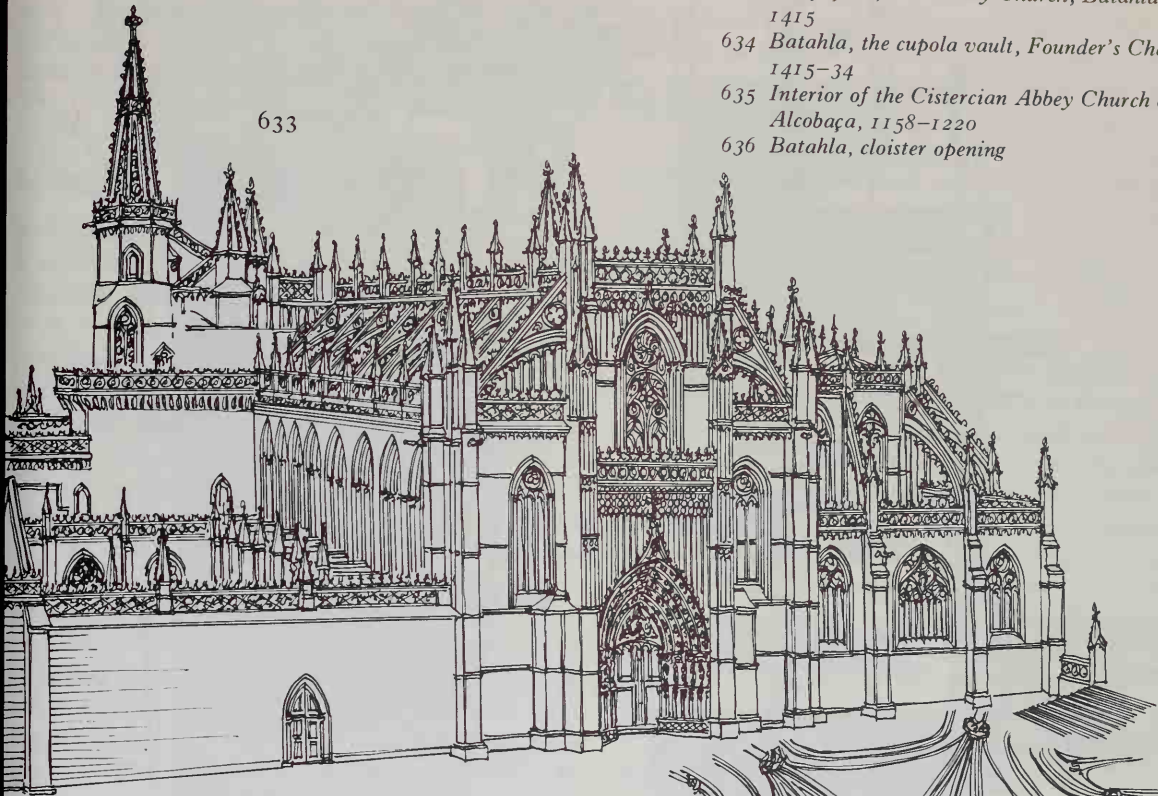 1415
634 Batahla, the cupola vault, Founder's
1415–34
635 Interior of the Cistercian Abbey Church
Alcobaça, 1158–1220
636 Batahla, cloister opening
633